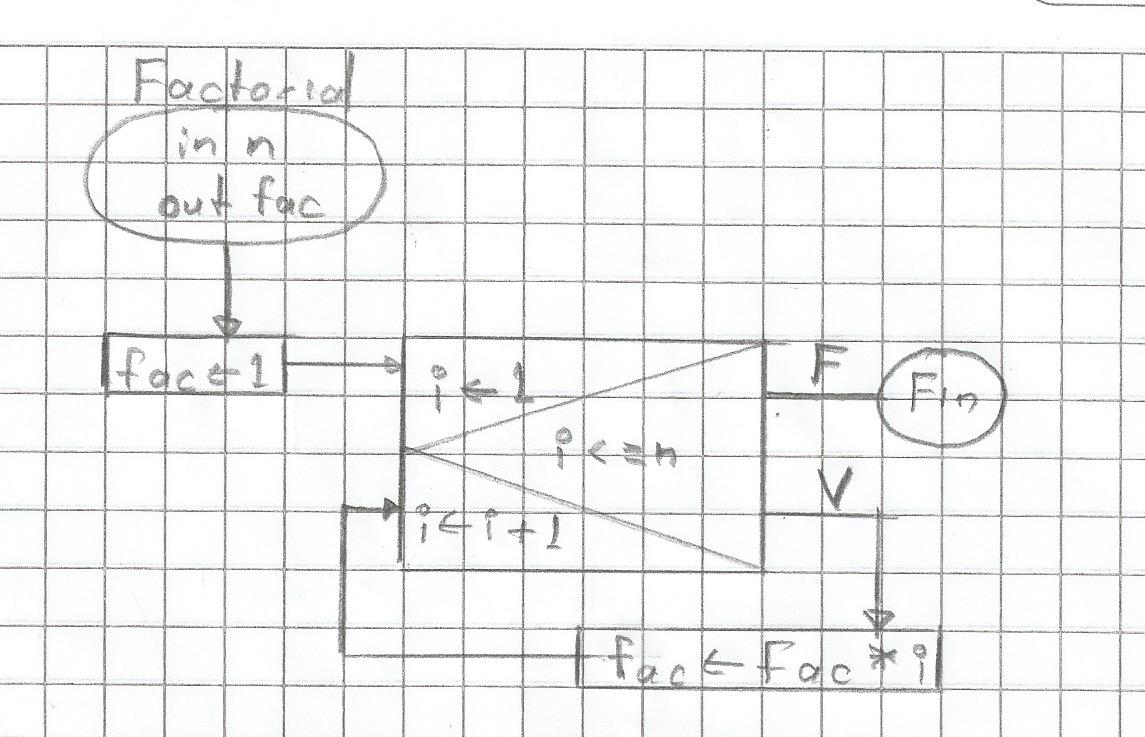 Factorial
in n
out fac
fac ← 1
i ← 1
i <= n
i ← i + 1
F
Fin
V
fac ← fac * i